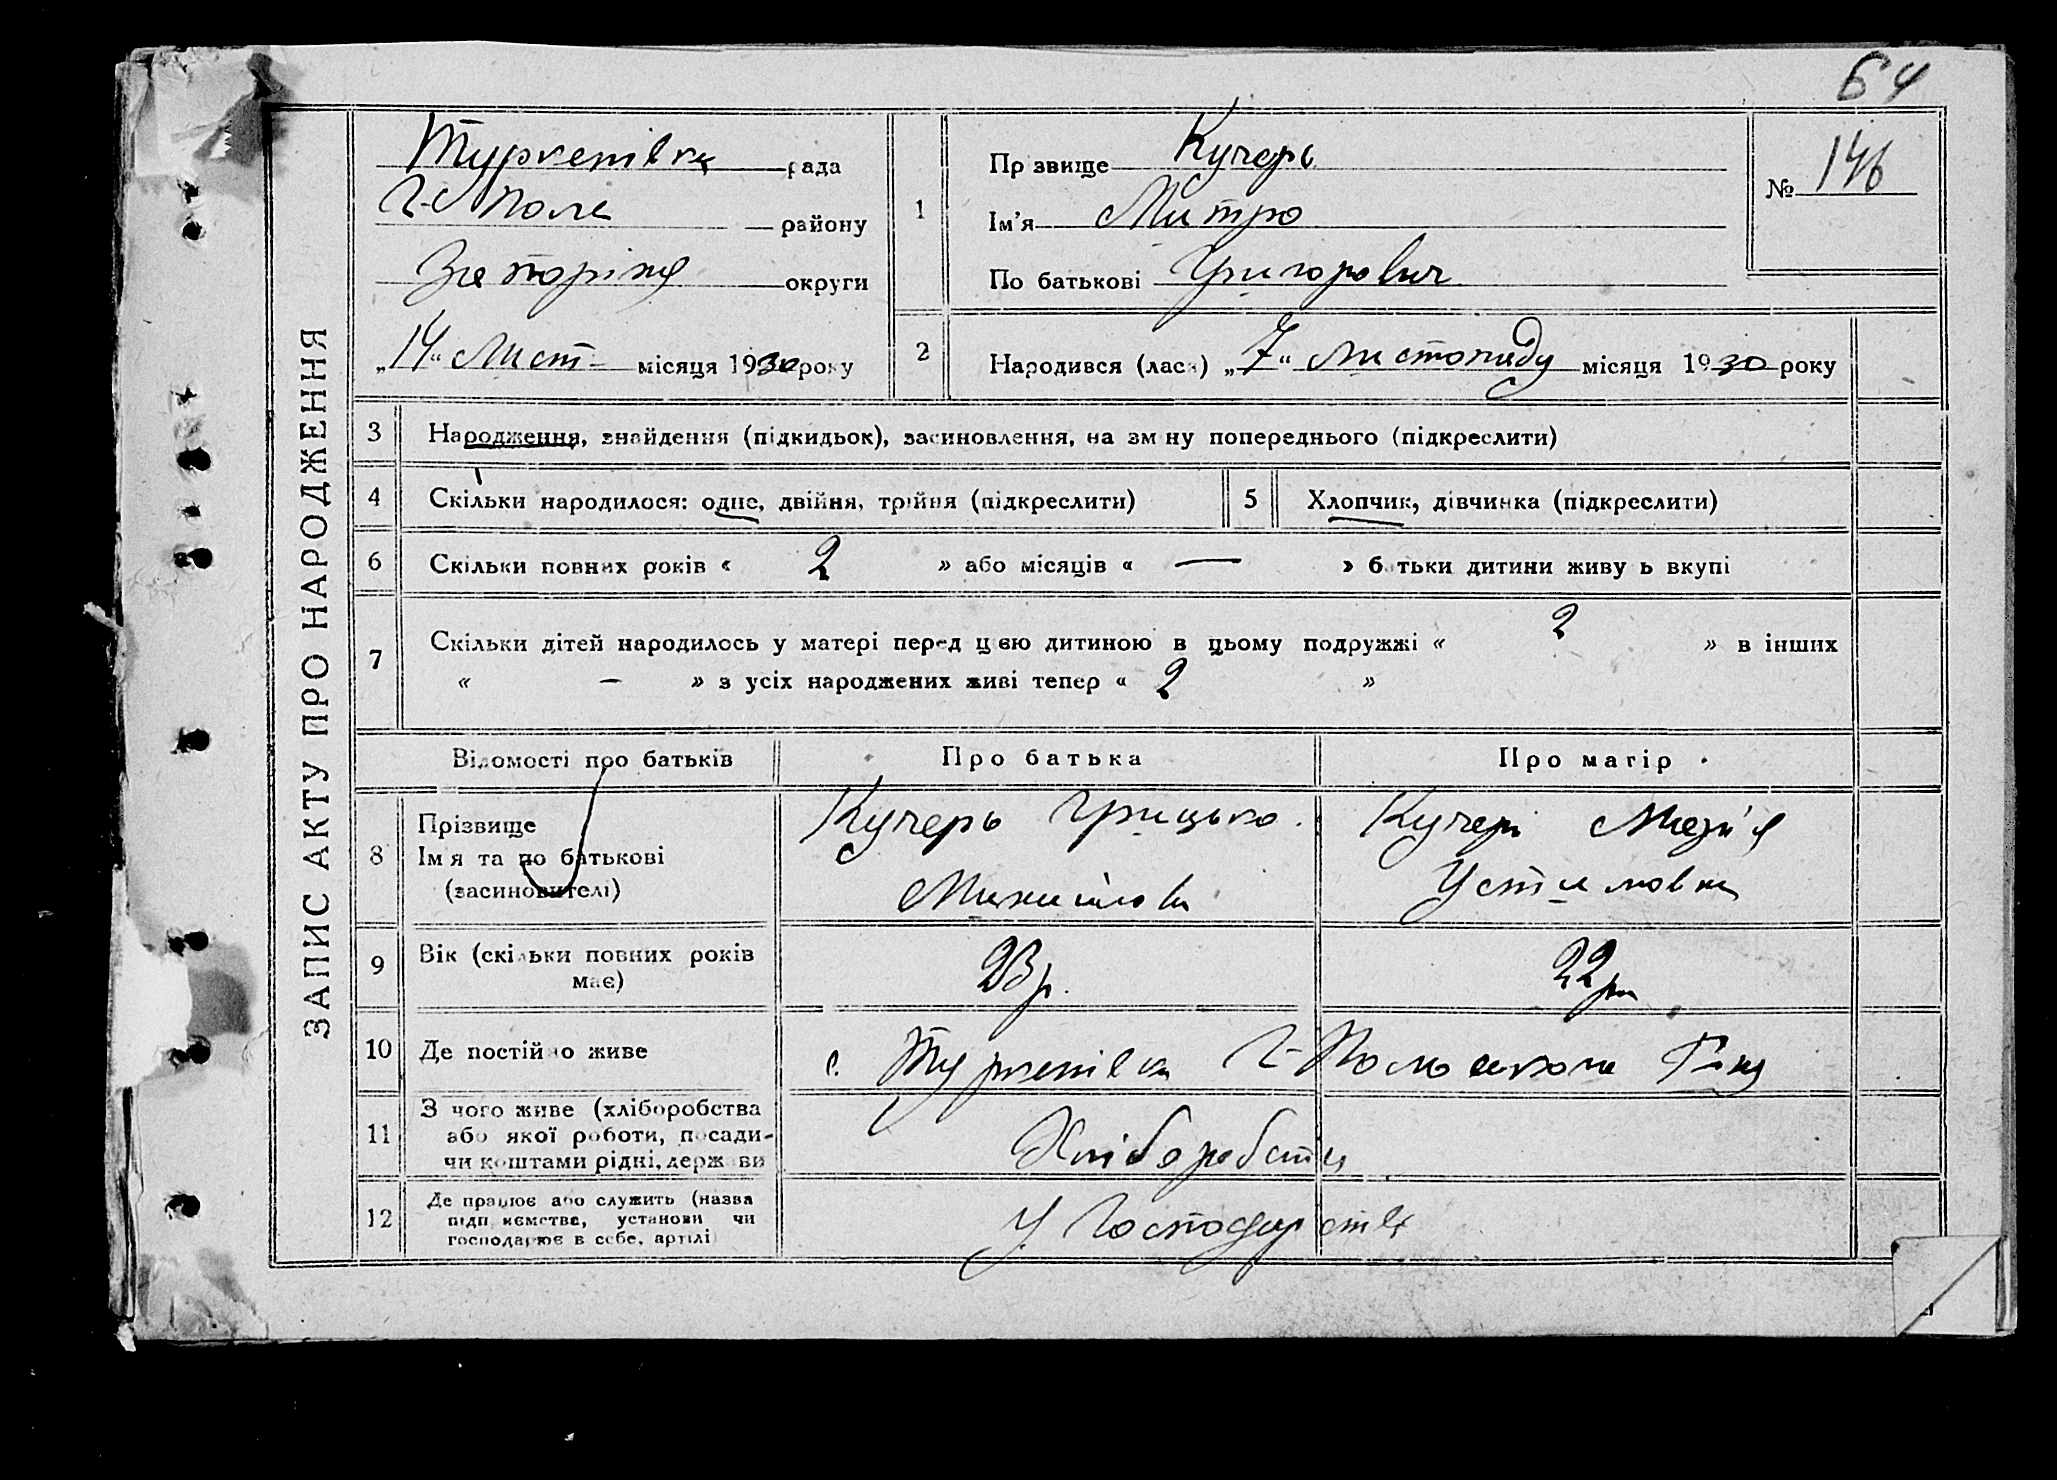 64
ЗАПИС АКТУ ПРО НАРОДЖЕННЯ
Туркенівка рада
Г-Поле району
Запоріжя округи
„14“ Лист- місяця 1930 року
1
Прізвище Кучерь
Ім'я Митро
По батькові Григорович
№ 146
2
Народився (лася) „7“ Листопаду місяця 1930 року
3 Народження, знайдення (підкидьок), засиновлення, на зміну попереднього (підкреслити)
4 Скільки народилося: одне, двійня, трійня (підкреслити) 5 Хлопчик, дівчинка (підкреслити)
6 Скільки повних років « 2 » або місяців « — » батьки дитини живуть вкупі
7 Скільки дітей народилось у матері перед цією дитиною в цьому подружжі « 2 » в інших
« — » з усіх народжених живі тепер « 2 »
Відомості про батьків Про батька Про матір
8 Прізвище
Ім'я та по батькові
(засиновителі)
Кучерь Грицько
Михайлов
Кучері Марія
Устимовна
9 Вік (скільки повних років
має)
23 р. 22 р
10 Де постійно живе с. Туркенівка Г-Польського Р-ну
11 З чого живе (хліборобства
або якої роботи, посади-
чи коштами рідні, держави
Хліборобства
12 Де працює або служить (назва
підприємства, установи чи
господарює в себе, артілі)
У господарстві